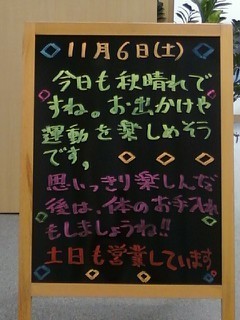 11月6日(土)
今日も秋晴れで
すね。お出かけや
運動を楽しめそう
です。
思いっきり楽しんだ
後は、体のお手入れ
もしましょうね!!
土日も営業しています。